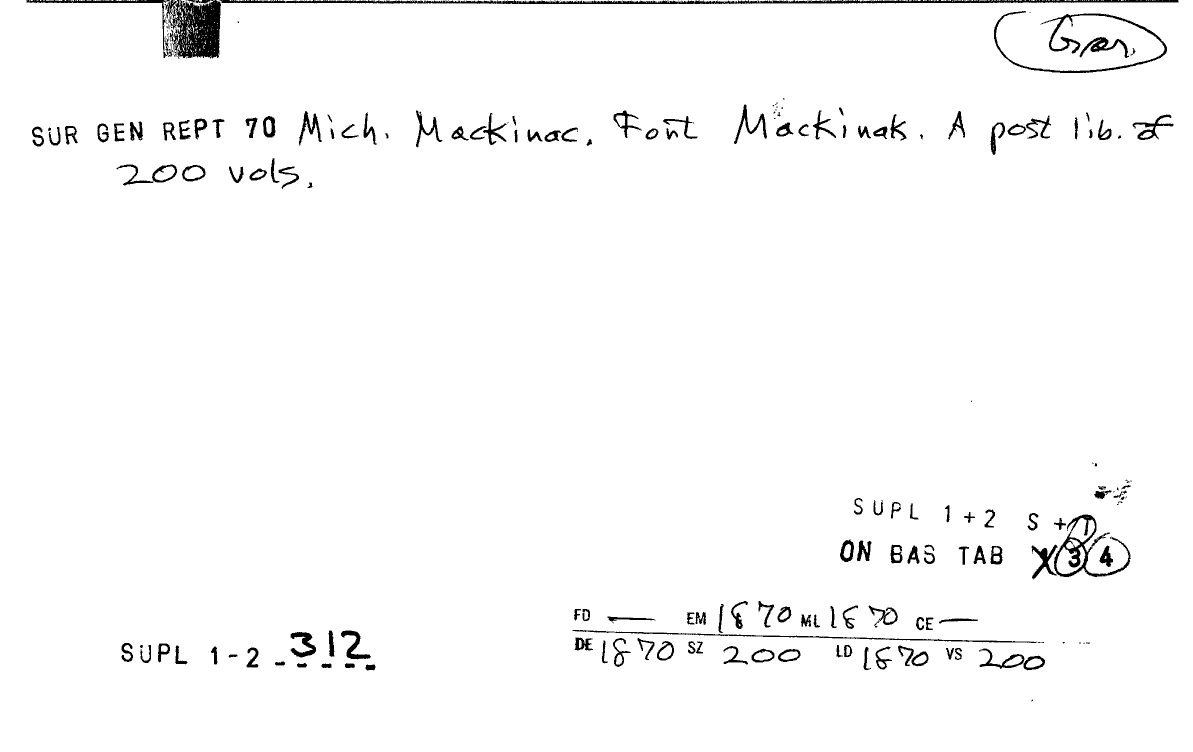 SUR GEN REPT 70 Mich. Mackinac. Font Mackinak. A post lib. of
200 vols.
SUPL 1+2 S+T
ON BAS TAB X 3 4
FD — EM 1870 ML 1870 CE —
SUPL 1-2 312
DE 1870 SZ 200 LD 1870 VS 200